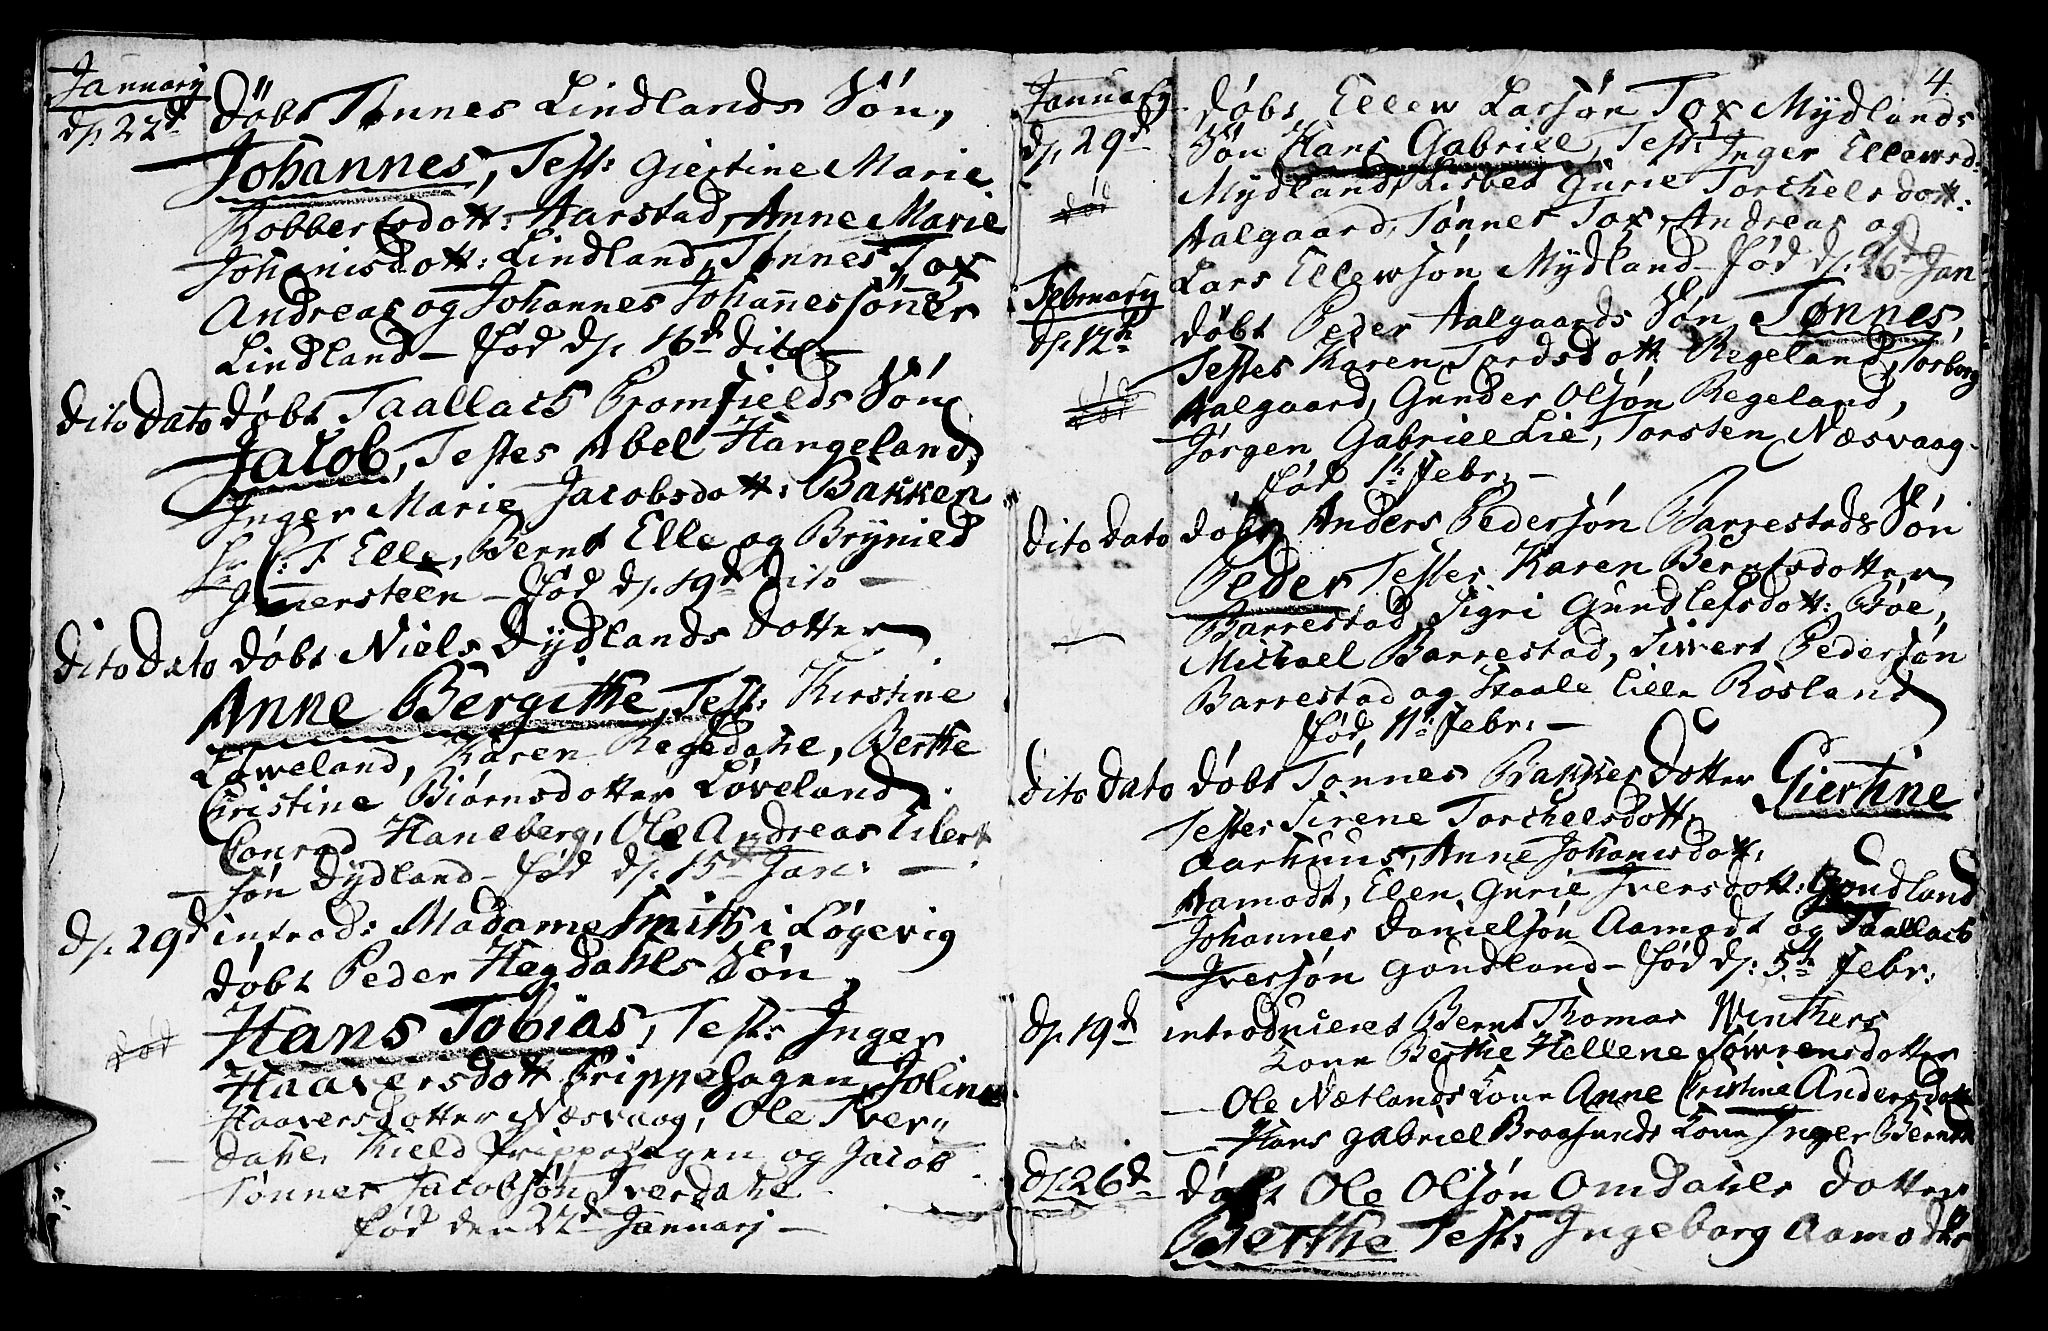 January
d. 22d døbt Tønnes Lindlands Søn,
Johannes, Test: Giertine Marie
Robbertsdott: Aarstad, Anne Marie
Johanisdott: Lindland, Tønnes Tox
Andreas og Johannes Johannessønner
Lindland – fød d. 16d dito –
dito dato døbt Taallach Bromfields Søn
Jacob, Testes Abel Hangeland,
Inger Marie Jacobsdott: Bakken
Hr C: F Elle, Bernt Elle og Brynild
Imersteen – fød d. 19d dito –
dito dato døbt Niels Dydlands dotter
Anne Bergithe, Test: Kirstine
Løweland, Karen Regedahl, Berthe
Christine Biørnsdotter Løveland
Conrad Haneberg, Ole Andreas Eilert
søn Dydland – fød d. 15d Jan: –
d. 29d introd: Madame Smith i Løgevig
døbt Peder Hegdahls Søn,
Hans Tobias, Test: Inger
død
Haaversdott Frippehagen, Joline
Haaversdotter Næsvaag, Ole Tver„
dahl, Kield Frippehagen og Jacob
Tønnes Jacobsøn Tverdahl
fød den 22d Januarj –
4.
January
d. 29d døbt Ellew Larsøn Tox Mydlands
Søn Hans Gabriel, Test: Inger Ellewsd:
Mydland, Lisbet Gurie Torchelsdott:
død
Aalgaard, Tønnes Tox, Andreas og
Lars Ellewsøn Mydland – fød d. 26d Jan
February
d. 12te døbt Peder Aalgaards Søn Tønnes,
Testes Karen Tordsdott Regeland, Torborg
død
Aalgaard, Gunder Olsøn Regeland,
Jørgen Gabriel Lie, Torsten Næsvaag –
fød 1t Febr: –
dito dato døbt Anders Pedersøn Barrestads Søn
Peder Testes Karen Berntsdotter
Barrestad, Sigri Gundlefsdott: Bøe,
Michael Barrestad, Siwert Pedersøn
Barrestad og Staale lille Rosland
fød 1t: Febr: –
dito dato døbt Tønnes Bakkes dotter Giertine
Testes Sirene Torchelsdott,
Aarhuus, Anne Johanisdott:
Aamodt, Elen Gurie Iversdott: Goudland
Johannes Danielsøn Aamodt og Taallach
Iversøn Goudland – fød d: 5te Febr:
d. 19d introduceret Bernt Thomas Winthers
Kone Berthe Hellene Søwrensdotter
– Ole Nætlands Kone Anne Christine Andersdott
– Hans Gabriel Braasunds Kone Inger Berntsd
d. 26d døbt Ole Olsøn Omdahls dotter
Berthe Test: Ingeborg Aamodts